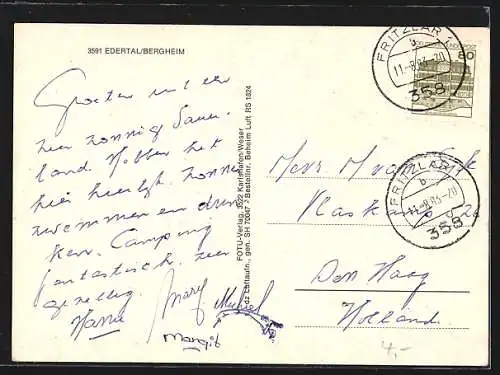 3591 EDERTAL/BERGHEIM
Groeten uit een
zeer zonnig Sauer-
land. Hebben het
hier heerlijk, zonnen
zwemmen en drin-
ken. Camping
fantastisch, zeer
gezellig.
Hanna Mary Muriel
Margit
FOTU-Verlag, 3522 Karlshafen/Weser
dz Luftaufn., gen. SH 72047 Bestellnr. Beheim Luft RS 1324
FRITZLAR 1
b
11.-8.83.-20
358
80
FRITZLAR 1
b
11.-8.83.-20
358
Mevr.
26
Den Haag
Holland.
4,-